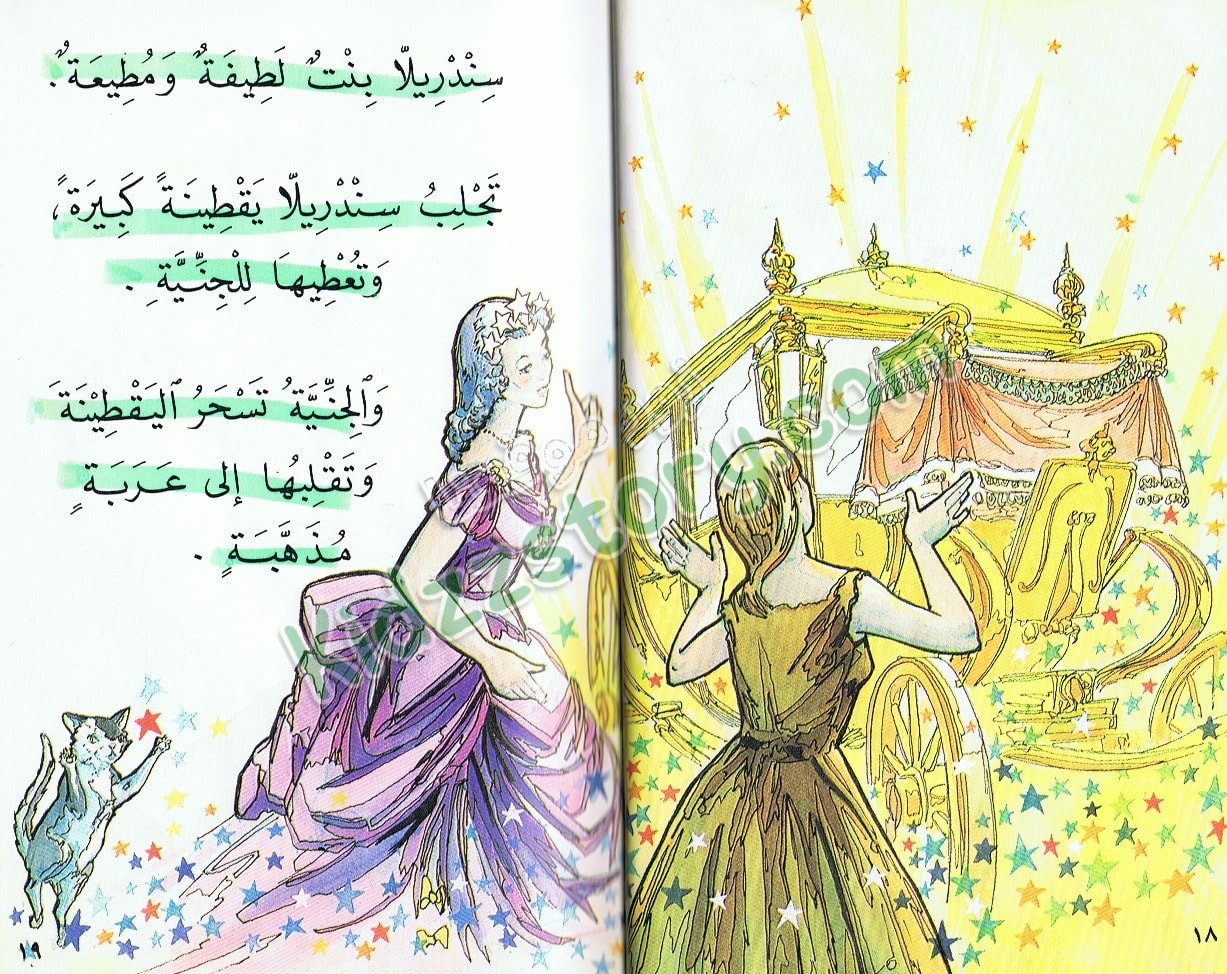 سِنْدْرِيلّا بِنْتٌ لَطِيفَةٌ وَمُطِيعَةٌ.
تَجْلِبُ سِنْدْرِيلّا يَقْطِينَةً كَبِيرَةً،
وَتُعْطِيهَا لِلْجِنِّيَّةِ.
وَٱلْجِنِّيَّةُ تَسْحَرُ ٱليَقْطِيْنَةَ
وَتَقْلِبُهَا إلى عَرَبَةٍ
مُذَهَّبَةٍ.
Kidzzstory.com
١٨
١٩